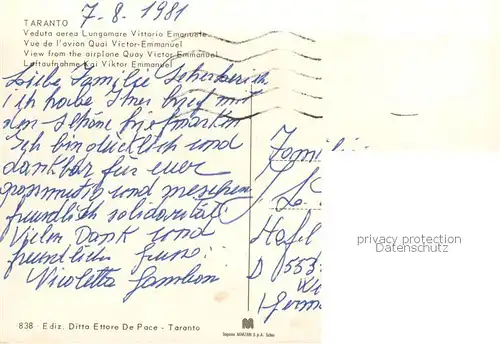 7-8-1981
TARANTO
Veduta aerea Lungomare Vittorio Emanuele
Vue de l'avion Quai Victor-Emmanuel
View from the airplane Quay Victor-Emmanuel
Luftaufnahme Kai Viktor Emmanuel
Liebe Familie
ich habe Ihner brief mit
den schöne briefmarken
Ich bin glücklich und
dankbar für euer
grossmutig und menschen
freundlich solidarität
Vielen Dank und
freundliche
Nicoletta
Famili
D 553
Germ
privacy protection
Datenschutz
838 · Ediz. Ditta Ettore De Pace - Taranto
M